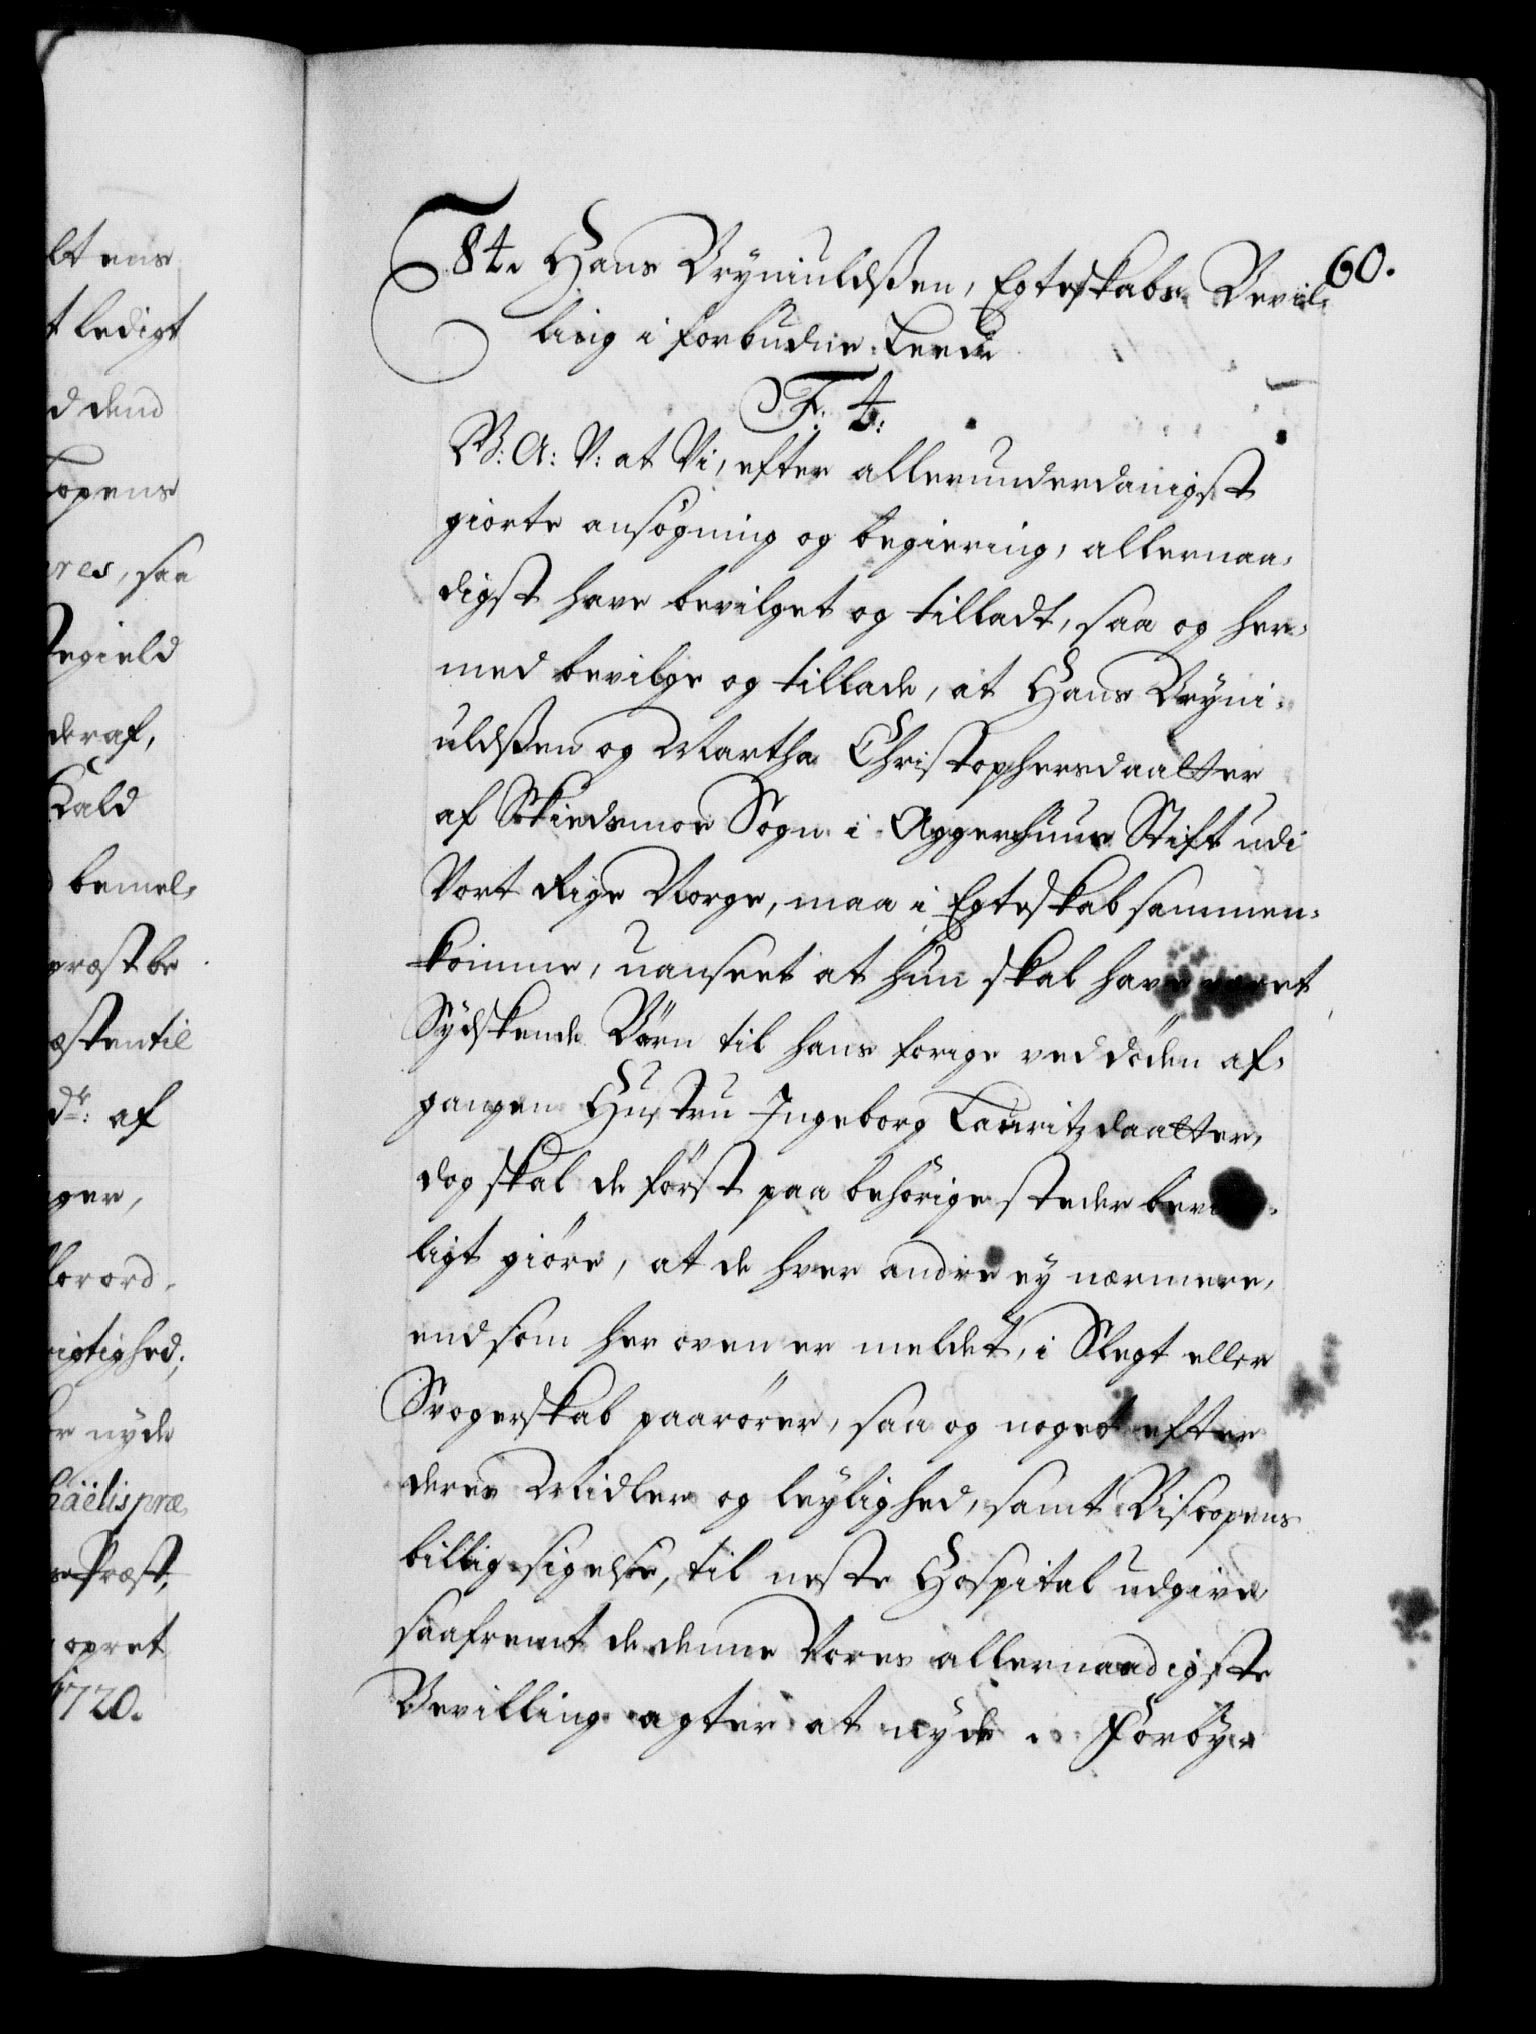 lt ens
t ledigt
d dend
opens
res, saa
egield
deraf,
Kald
bemel,
præst be
østen til
dr: af
ger,
Forord,
rigtighed,
r nyde
haëlis præ
Præst,
opret
1720.
60.
84. Hans Bryniuldßen, Egteskabs Bevil,
ling i forbudne Leede
F: 4:
G: A: V: at Vi, efter allerunderdanigst
giorte ansøgning og begiering, allernaa,
digst have bevilget og tilladt, saa og her,
med bevilge og tillade, at Hans Bryni,
uldßen og Martha Christophersdaatter
af Skiedsmoe Sogn i Aggershuus Stift udi
Vort Rige Norge, maa i Egteskab sammen,
komme, uanseet at hun skal have været
Sydskende Børn til hans forige ved døden af,
gangen Hustru Ingeborg Lauritzdaatter,
dog skal de først paa behørige steder bevi
ligt giøre, at de hver andre ey nærmere,
end som her oven er meldet, i Slegt eller
Svogerskab paarører, saa og noget efter
deres Midler og leylighed, samt Biscopens
billig sigelse, til neste Hospital udgive
saafremt de denne Vores allernaadigste
Bevilling agter at nyde. Forby,